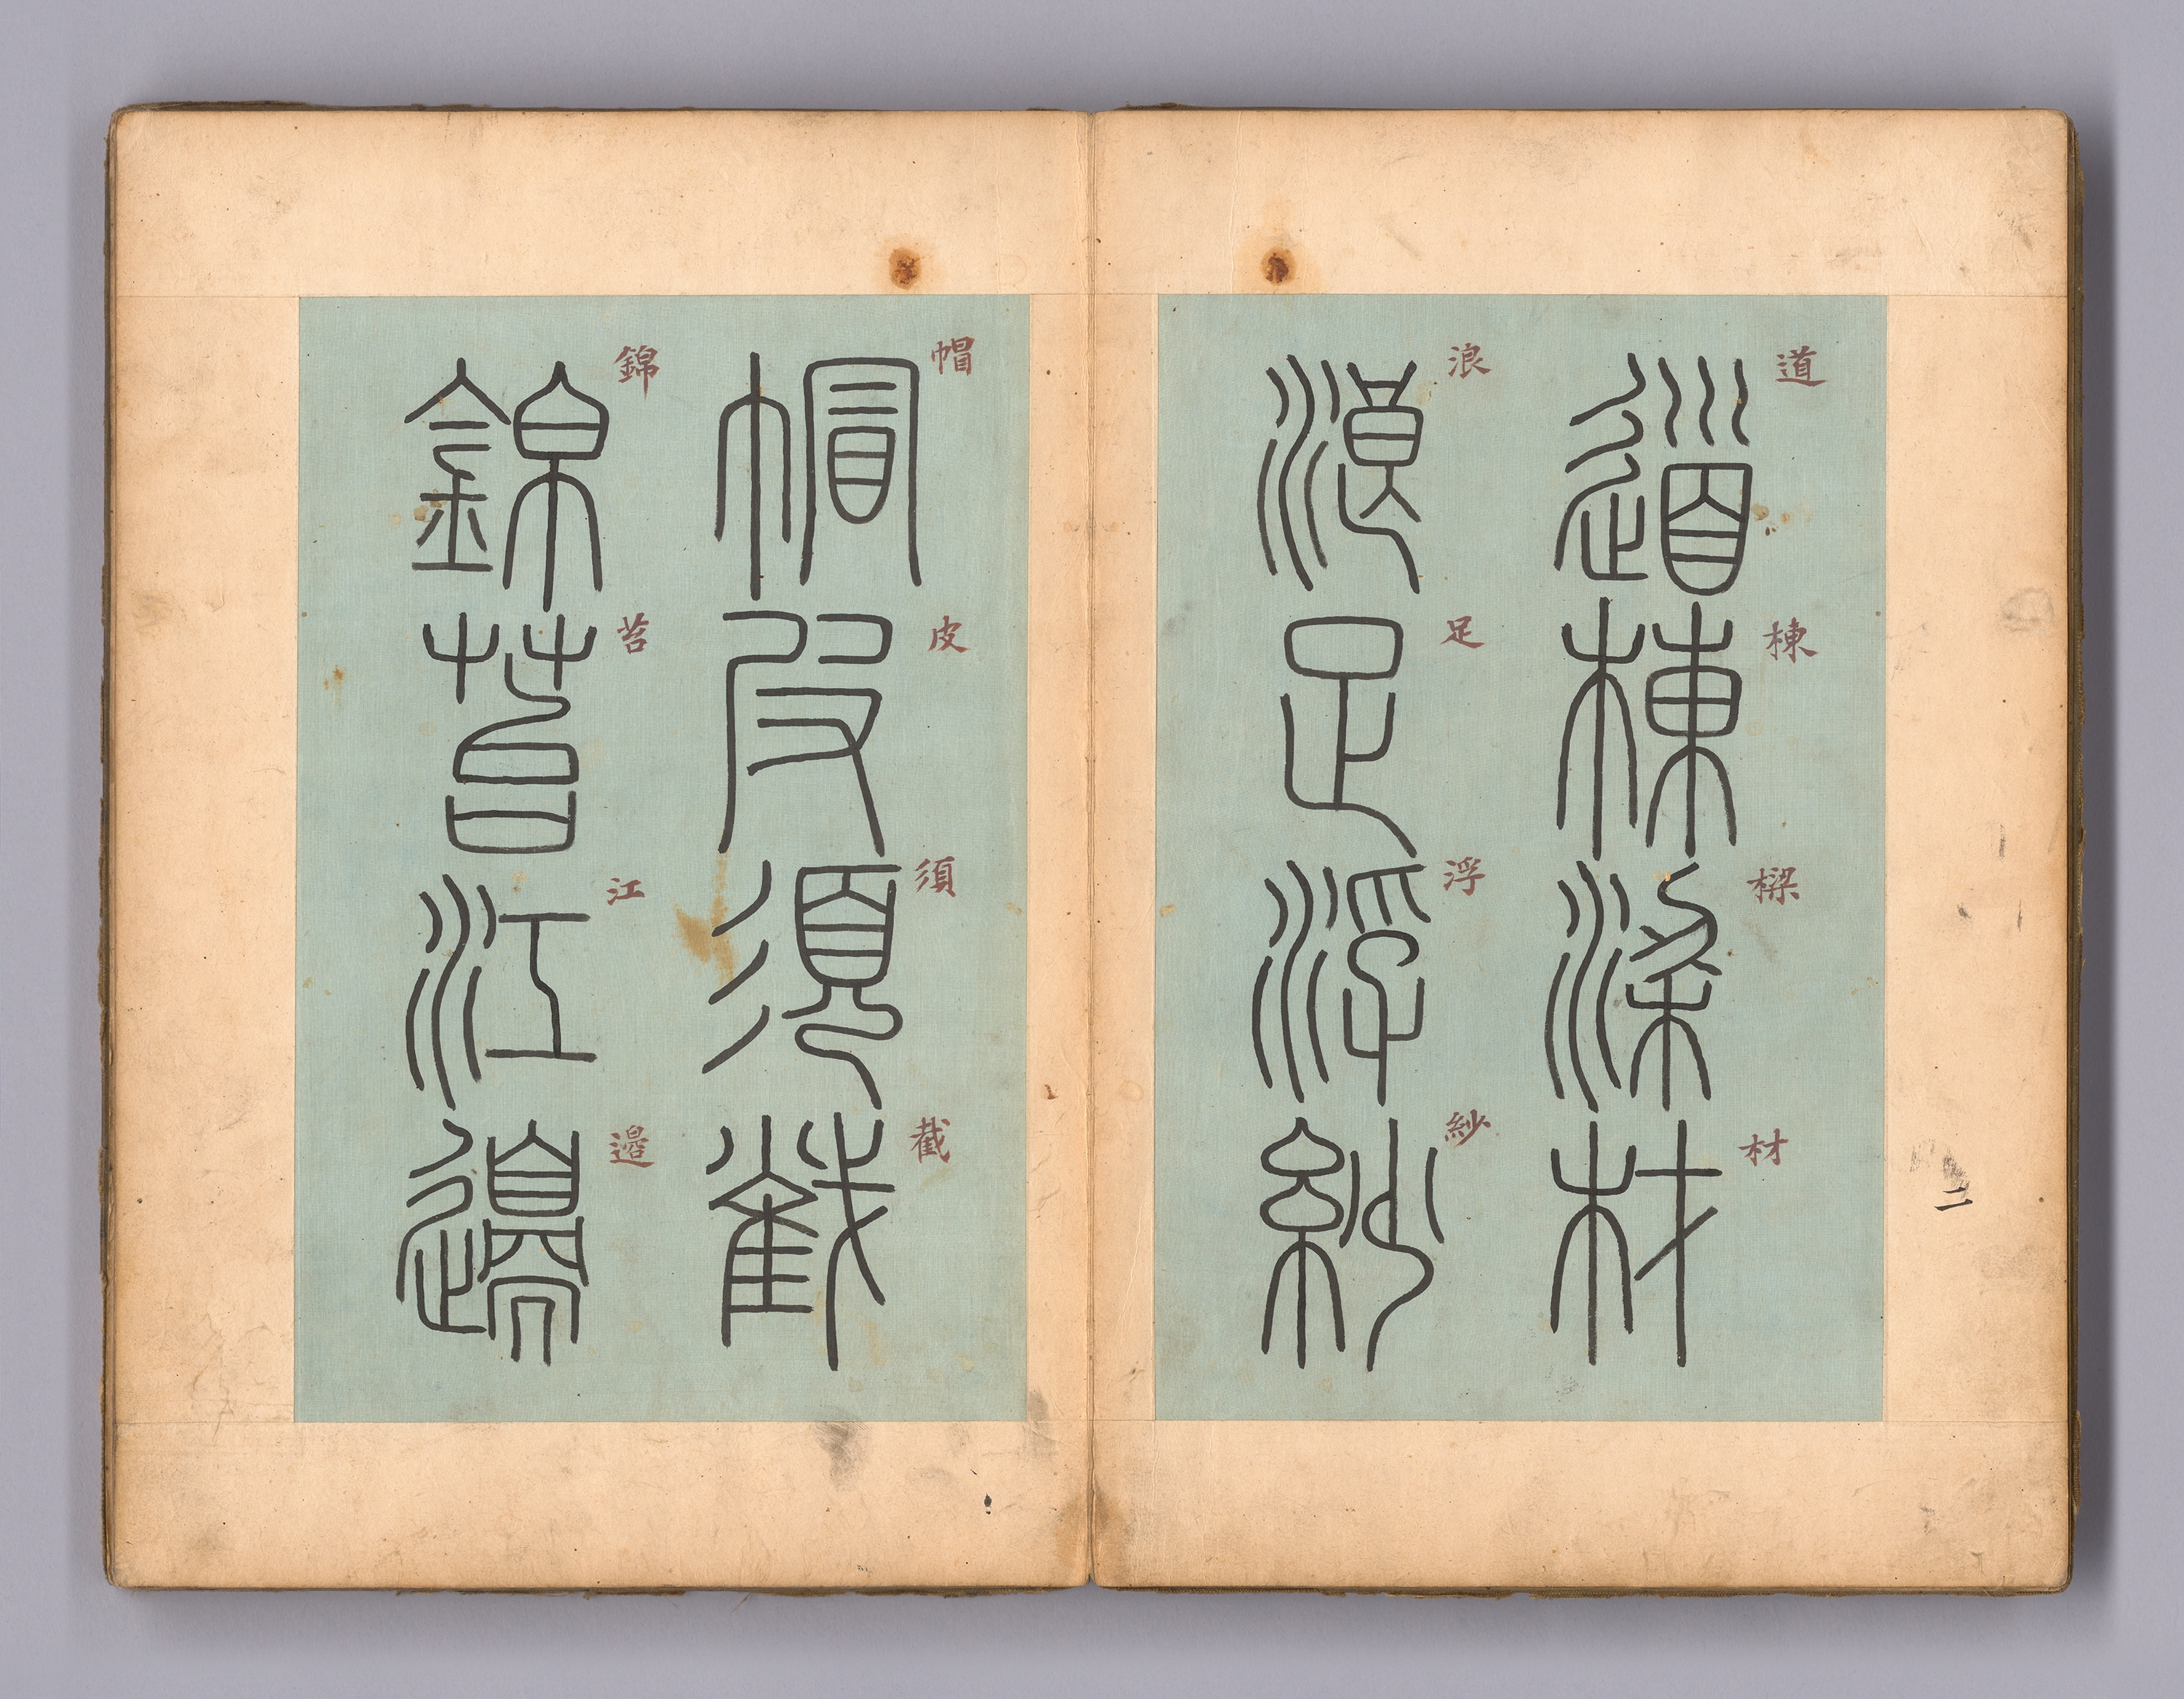 二
道棟樑材
道棟梁材
浪足浮紗
浪足浮紗
帽皮須截
帽皮須截
錦苔江邊
錦苔江邊